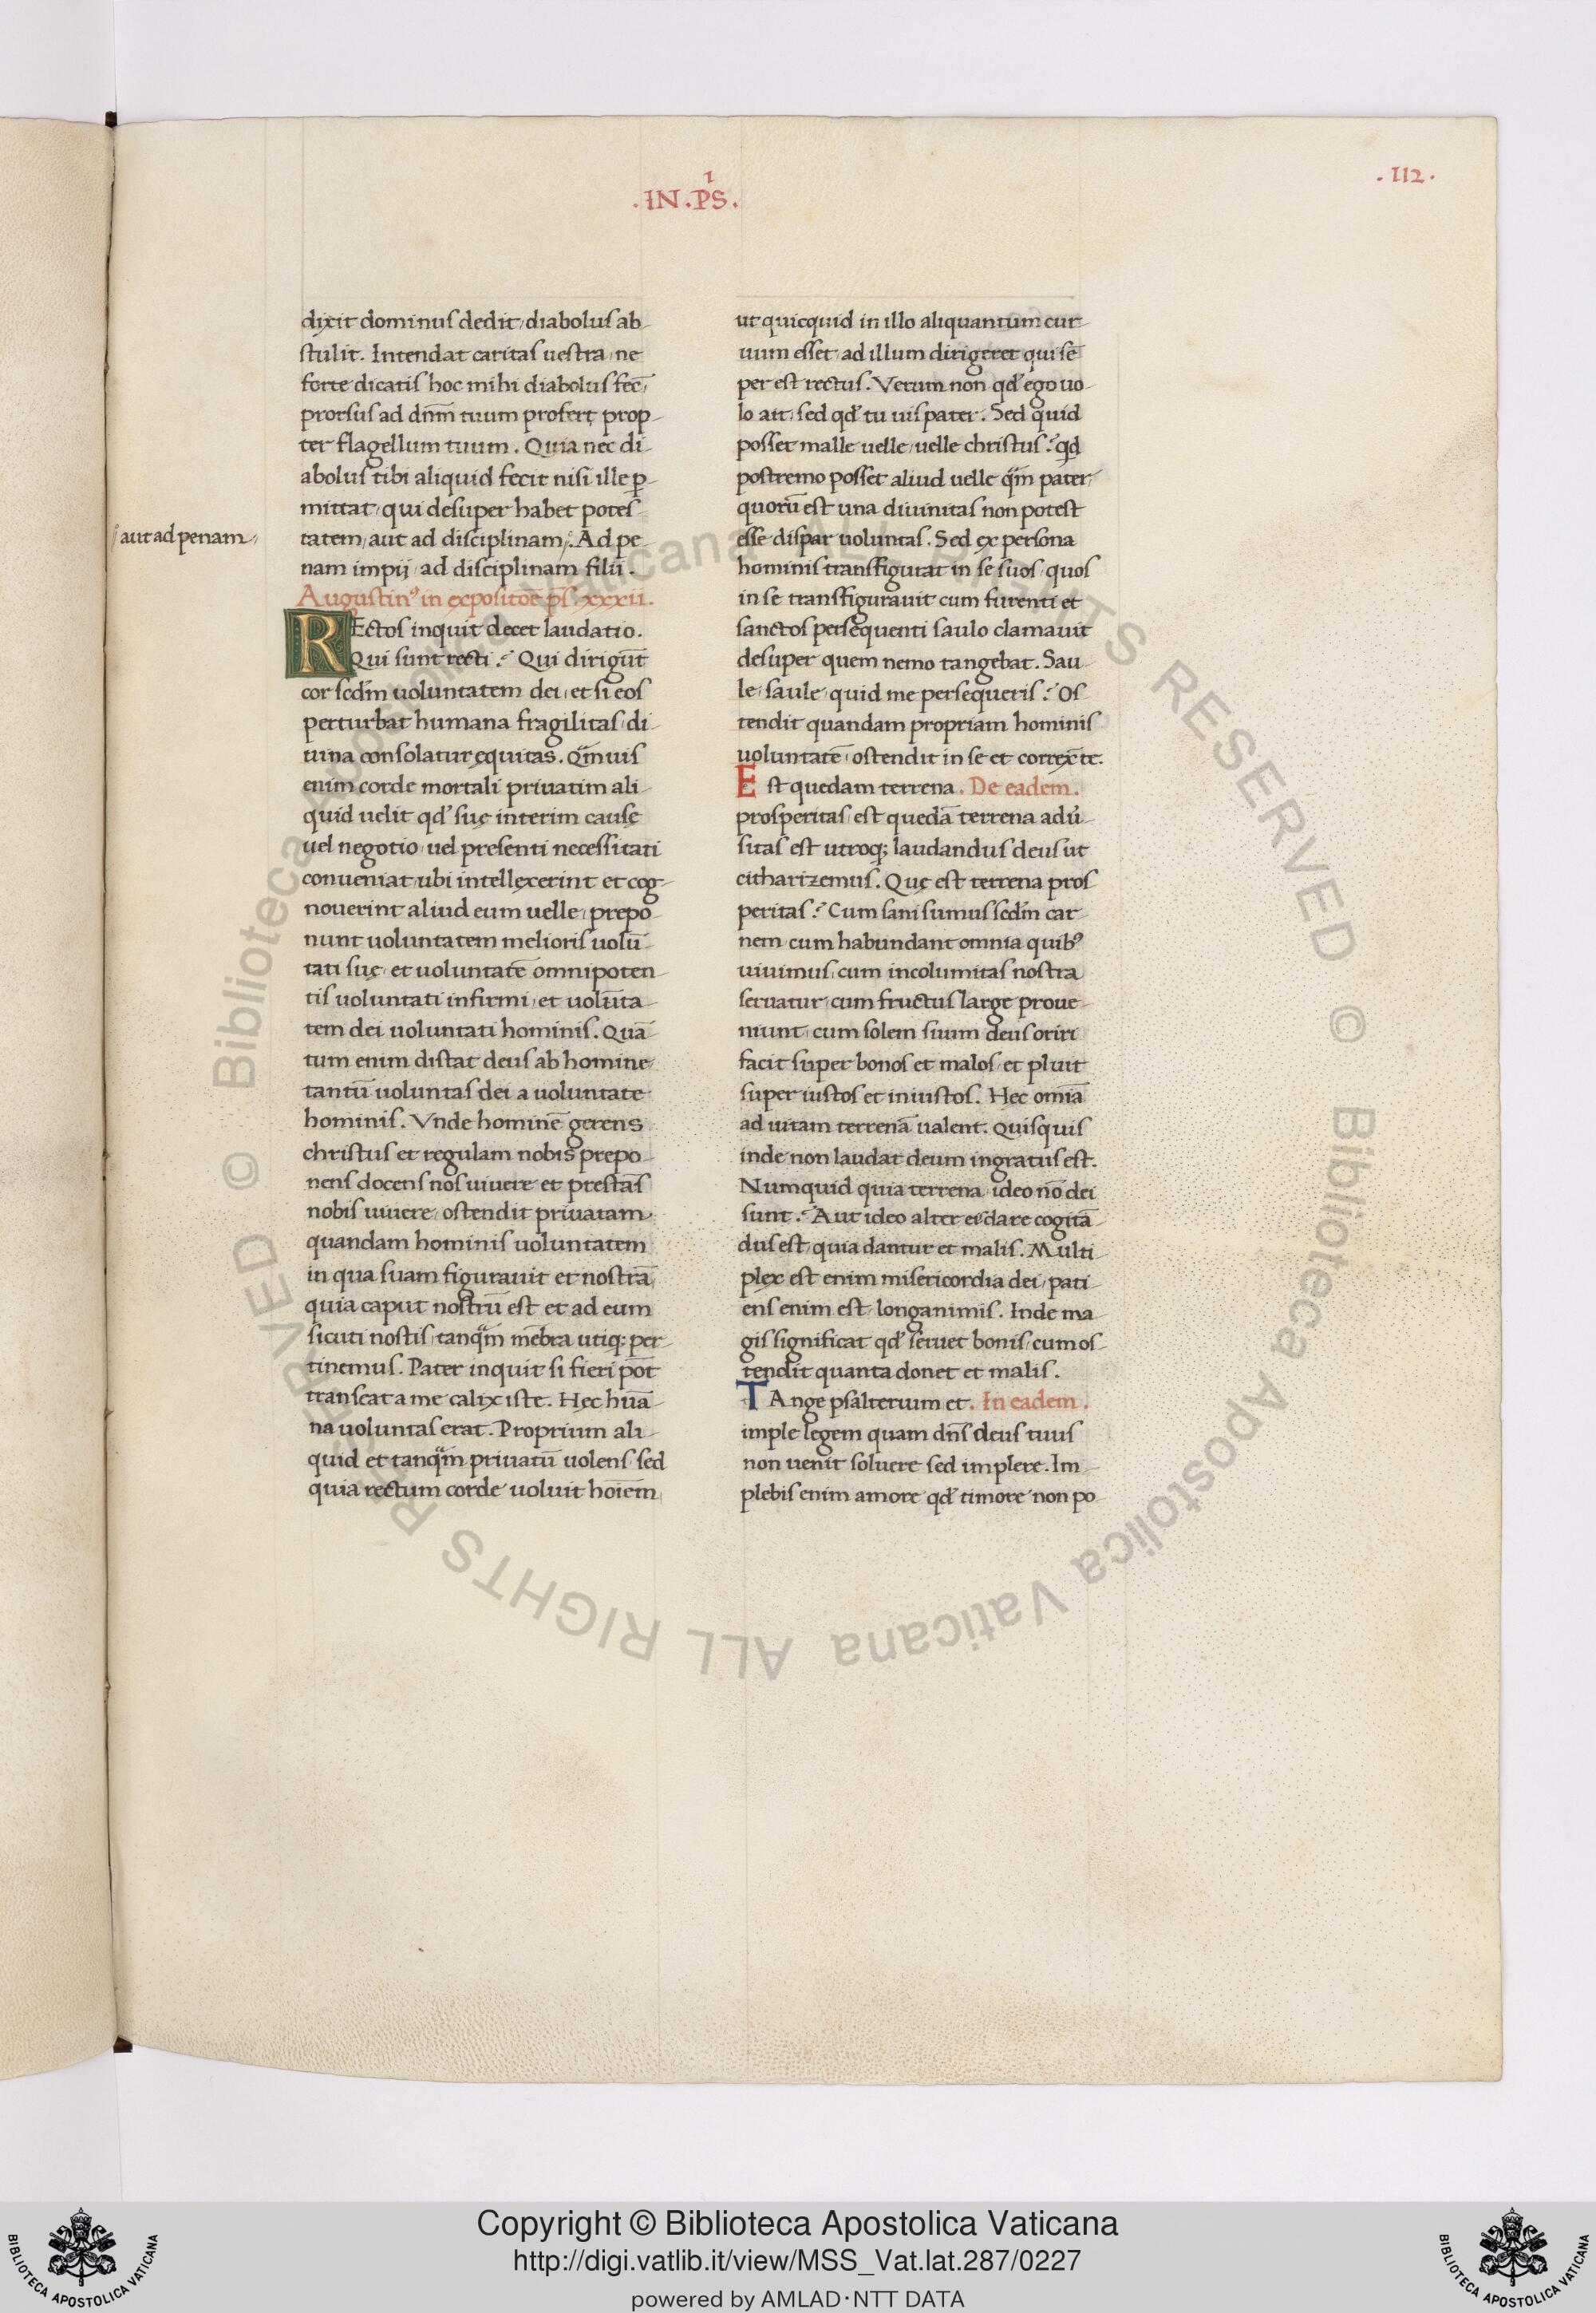 .IN.PS.
1
.112.
dixit dominus dedit, diabolus ab-
stulit. Intendat caritas uestra, ne
forte dicatis hoc mihi diabolus fec̄,
prorsus ad dn̄m tuum profert, prop-
ter flagellum tuum. Quia nec di-
abolus tibi aliquid fecit nisi ille ꝑ-
mittat, qui desuper habet potes-
aut ad penam,
tatem, aut ad disciplinam. Ad pe-
nam impij, ad disciplinam filii.
Augustinꝰ in expositōe ps̄. xxxii.
REctos inquit decet laudatio.
Qui sunt recti? Qui dirigūt
cor scdm̄ uoluntatem dei, et si eos
perturbat humana fragilitas, di-
uina consolatur equitas. Qm̄uis
enim corde mortali priuatim ali-
quid uelit qd̄ suę interim causę
uel negotio uel presenti necessitati
conueniat, ubi intellexerint et cog-
nouerint aliud eum uelle, prepo-
nunt uoluntatem melioris uolū-
tati suę, et uoluntatē omnipoten-
tis uoluntati infirmi, et uolūta-
tem dei uoluntati hominis. Quā-
tum enim distat deus ab homine
tantū uoluntas dei a uoluntate
hominis. Vnde hominē gerens
christus et regulam nobis prepo-
nens docens nos uiuere et prestās
nobis uiuere, ostendit priuatam
quandam hominis uoluntatem
in qua suam figurauit et nostrā,
quia caput nostrū est et ad eum
sicuti nostis, tanqm̄ mēbra utiqꝫ per-
tinemus. Pater inquit si fieri pōt
transeat a me calix iste. Hec huā-
na uoluntas erat. Proprium ali-
quid et tanqm̄ priuatū uolens, sed
quia rectum corde uoluit hoīem,
ut quicquid in illo aliquantum cur-
uum esset, ad illum dirigeret qui sē-
per est rectus. Verum non qd̄ ego uo-
lo ait, sed qd̄ tu uis pater. Sed quid
posset malle uelle, uelle christus? qd
postremo posset aliud uelle qm̄ pater,
quorū est una diuinitas non potest
esse dispar uoluntas. Sed ex persona
hominis transfigurat in se suos, quos
in se transfigurauit cum furenti et
sanctos persequenti saulo clamauit
desuper quem nemo tangebat. Sau-
le, saule, quid me persequeris? Os
tendit quandam propriam hominis
uoluntatē, ostendit in se et correx̄ te.
Est quedam terrena. De eadem.
prosperitas, est quedā terrena adū-
sitas est utroqꝫ laudandus deus ut
citharizemus. Quę est terrena pros
peritas? Cum sani sumus scdm̄ car-
nem, cum habundant omnia quibꝰ
uiuimus, cum incolumitas nostra
seruatur, cum fructus large proue-
niunt, cum solem suum deus oriri
facit super bonos et malos, et pluit
super iustos et iniustos. Hec omīa
ad uitam terrenā ualent. Quisquis
inde non laudat deum ingratus est.
Numquid quia terrena, ideo nō dei
sunt? Aut ideo alter ei dare cogitā-
dus est, quia dantur et malis. Multi
plex est enim misericordia dei, pati-
ens enim est, longanimis. Inde ma-
gis significat qd̄ seruet bonis, cum os-
tendit quanta donet et malis.
TAnge psalterium et. In eadem.
imple legem quam dn̄s deus tuus
non uenit soluere sed implere. Im-
plebis enim amore qd̄ timore non po
Copyright © Biblioteca Apostolica Vaticana
http://digi.vatlib.it/view/MSS_Vat.lat.287/0227
powered by AMLAD·NTT DATA
BIBLIOTECA APOSTOLICA VATICANA
BIBLIOTECA APOSTOLICA VATICANA
© Biblioteca Apostolica Vaticana ALL RIGHTS RESERVED © Biblioteca Apostolica Vaticana ALL RIGHTS RESERVED